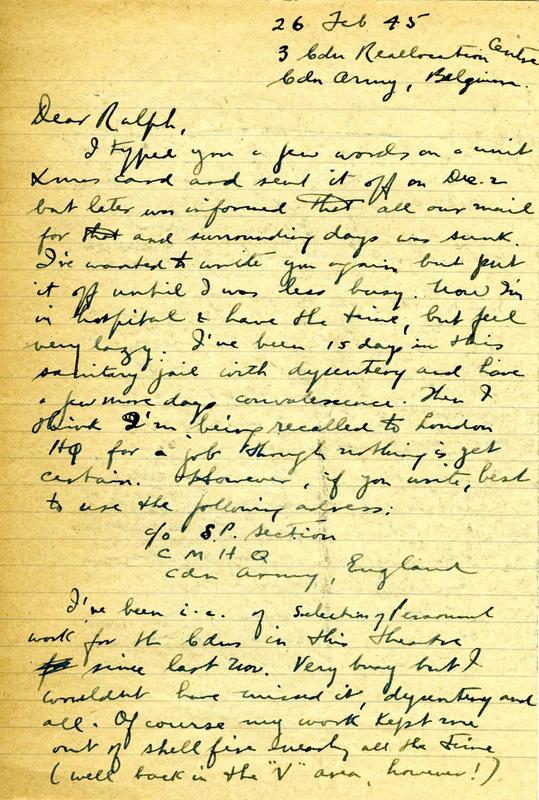 26 Feb 45
3 Cdn Reallocation Centre
Cdn Army, Belgium.
Dear Ralph,
I typed you a few words on a unit
Xmas card and sent it off on Dec. 2
but later was informed that all our mail
for that and surrounding days was sunk.
I've wanted to write you again but put
it off until I was less busy. Now I'm
in hospital & have the time, but feel
very lazy. I've been 15 days in this
sanitary jail with dysentery and have
a few more days convalescence. Then I
think I'm being recalled to London
HQ for a job though nothing is yet
certain. However, if you write, best
to use the following adress:
c/o S.P. Section
C M H Q
Cdn Army, England
I've been i.c. of Selection of Personnel
work for the Cdns in this theatre
since last Nov. Very busy but I
wouldn't have missed it, dysentery and
all. Of course my work kept me
out of shellfire nearly all the time
(well back in the "V" area, however!)